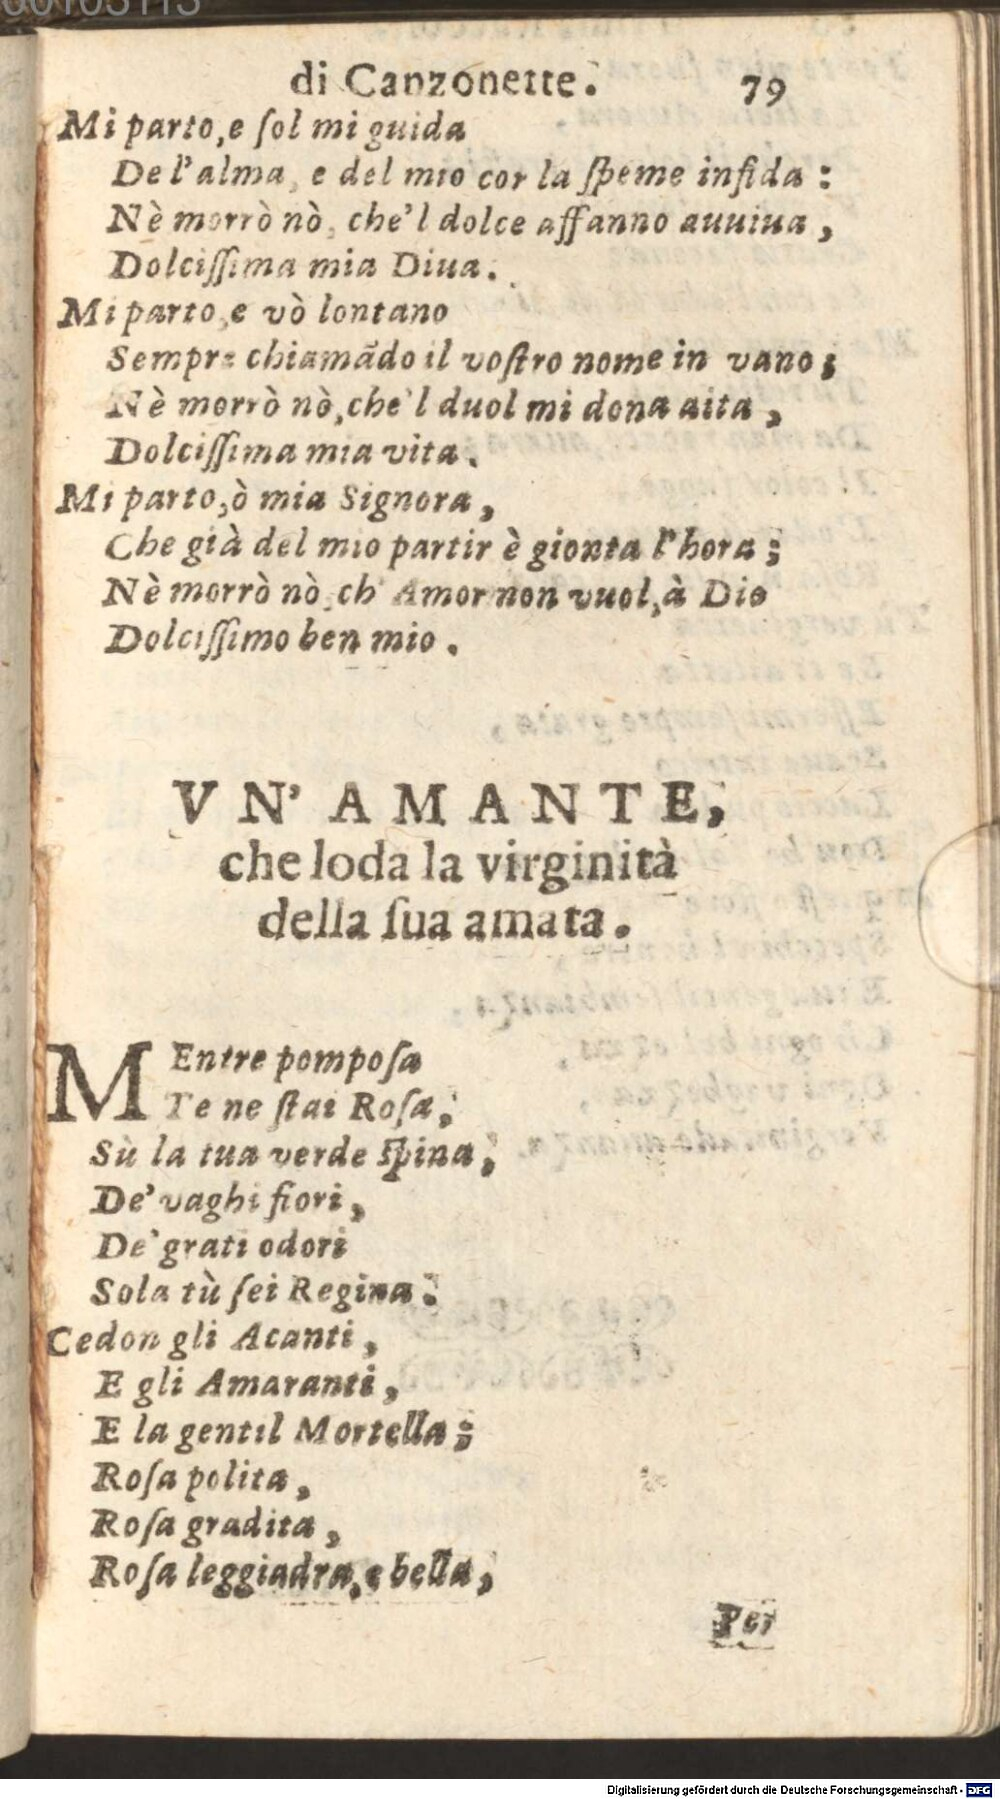 00103113
di Canzonette. 79
Mi parto, e ſol mi guida
De l'alma, e del mio cor la ſpeme infida:
Nè morrò nò, che'l dolce affanno auuiua,
Dolciſſima mia Diua.
Mi parto, e vò lontano
Sempre chiamādo il voſtro nome in vano;
Nè morrò nò, che'l duol mi dona aita,
Dolciſſima mia vita.
Mi parto, ò mia Signora,
Che già del mio partir è gionta l'hora;
Nè morrò nò, ch'Amor non vuol, à Dio
Dolciſſimo ben mio.
VN' AMANTE,
che loda la virginità
della ſua amata.
MEntre pompoſa
Te ne ſtai Roſa,
Sù la tua verde ſpina,
De' vaghi fiori,
De' grati odori
Sola tù ſei Regina:
Cedon gli Acanti,
E gli Amaranti,
E la gentil Mortella;
Roſa polita,
Roſa gradita,
Roſa leggiadra, e bella,
Per
Digitalisierung gefördert durch die Deutsche Forschungsgemeinschaft - DFG